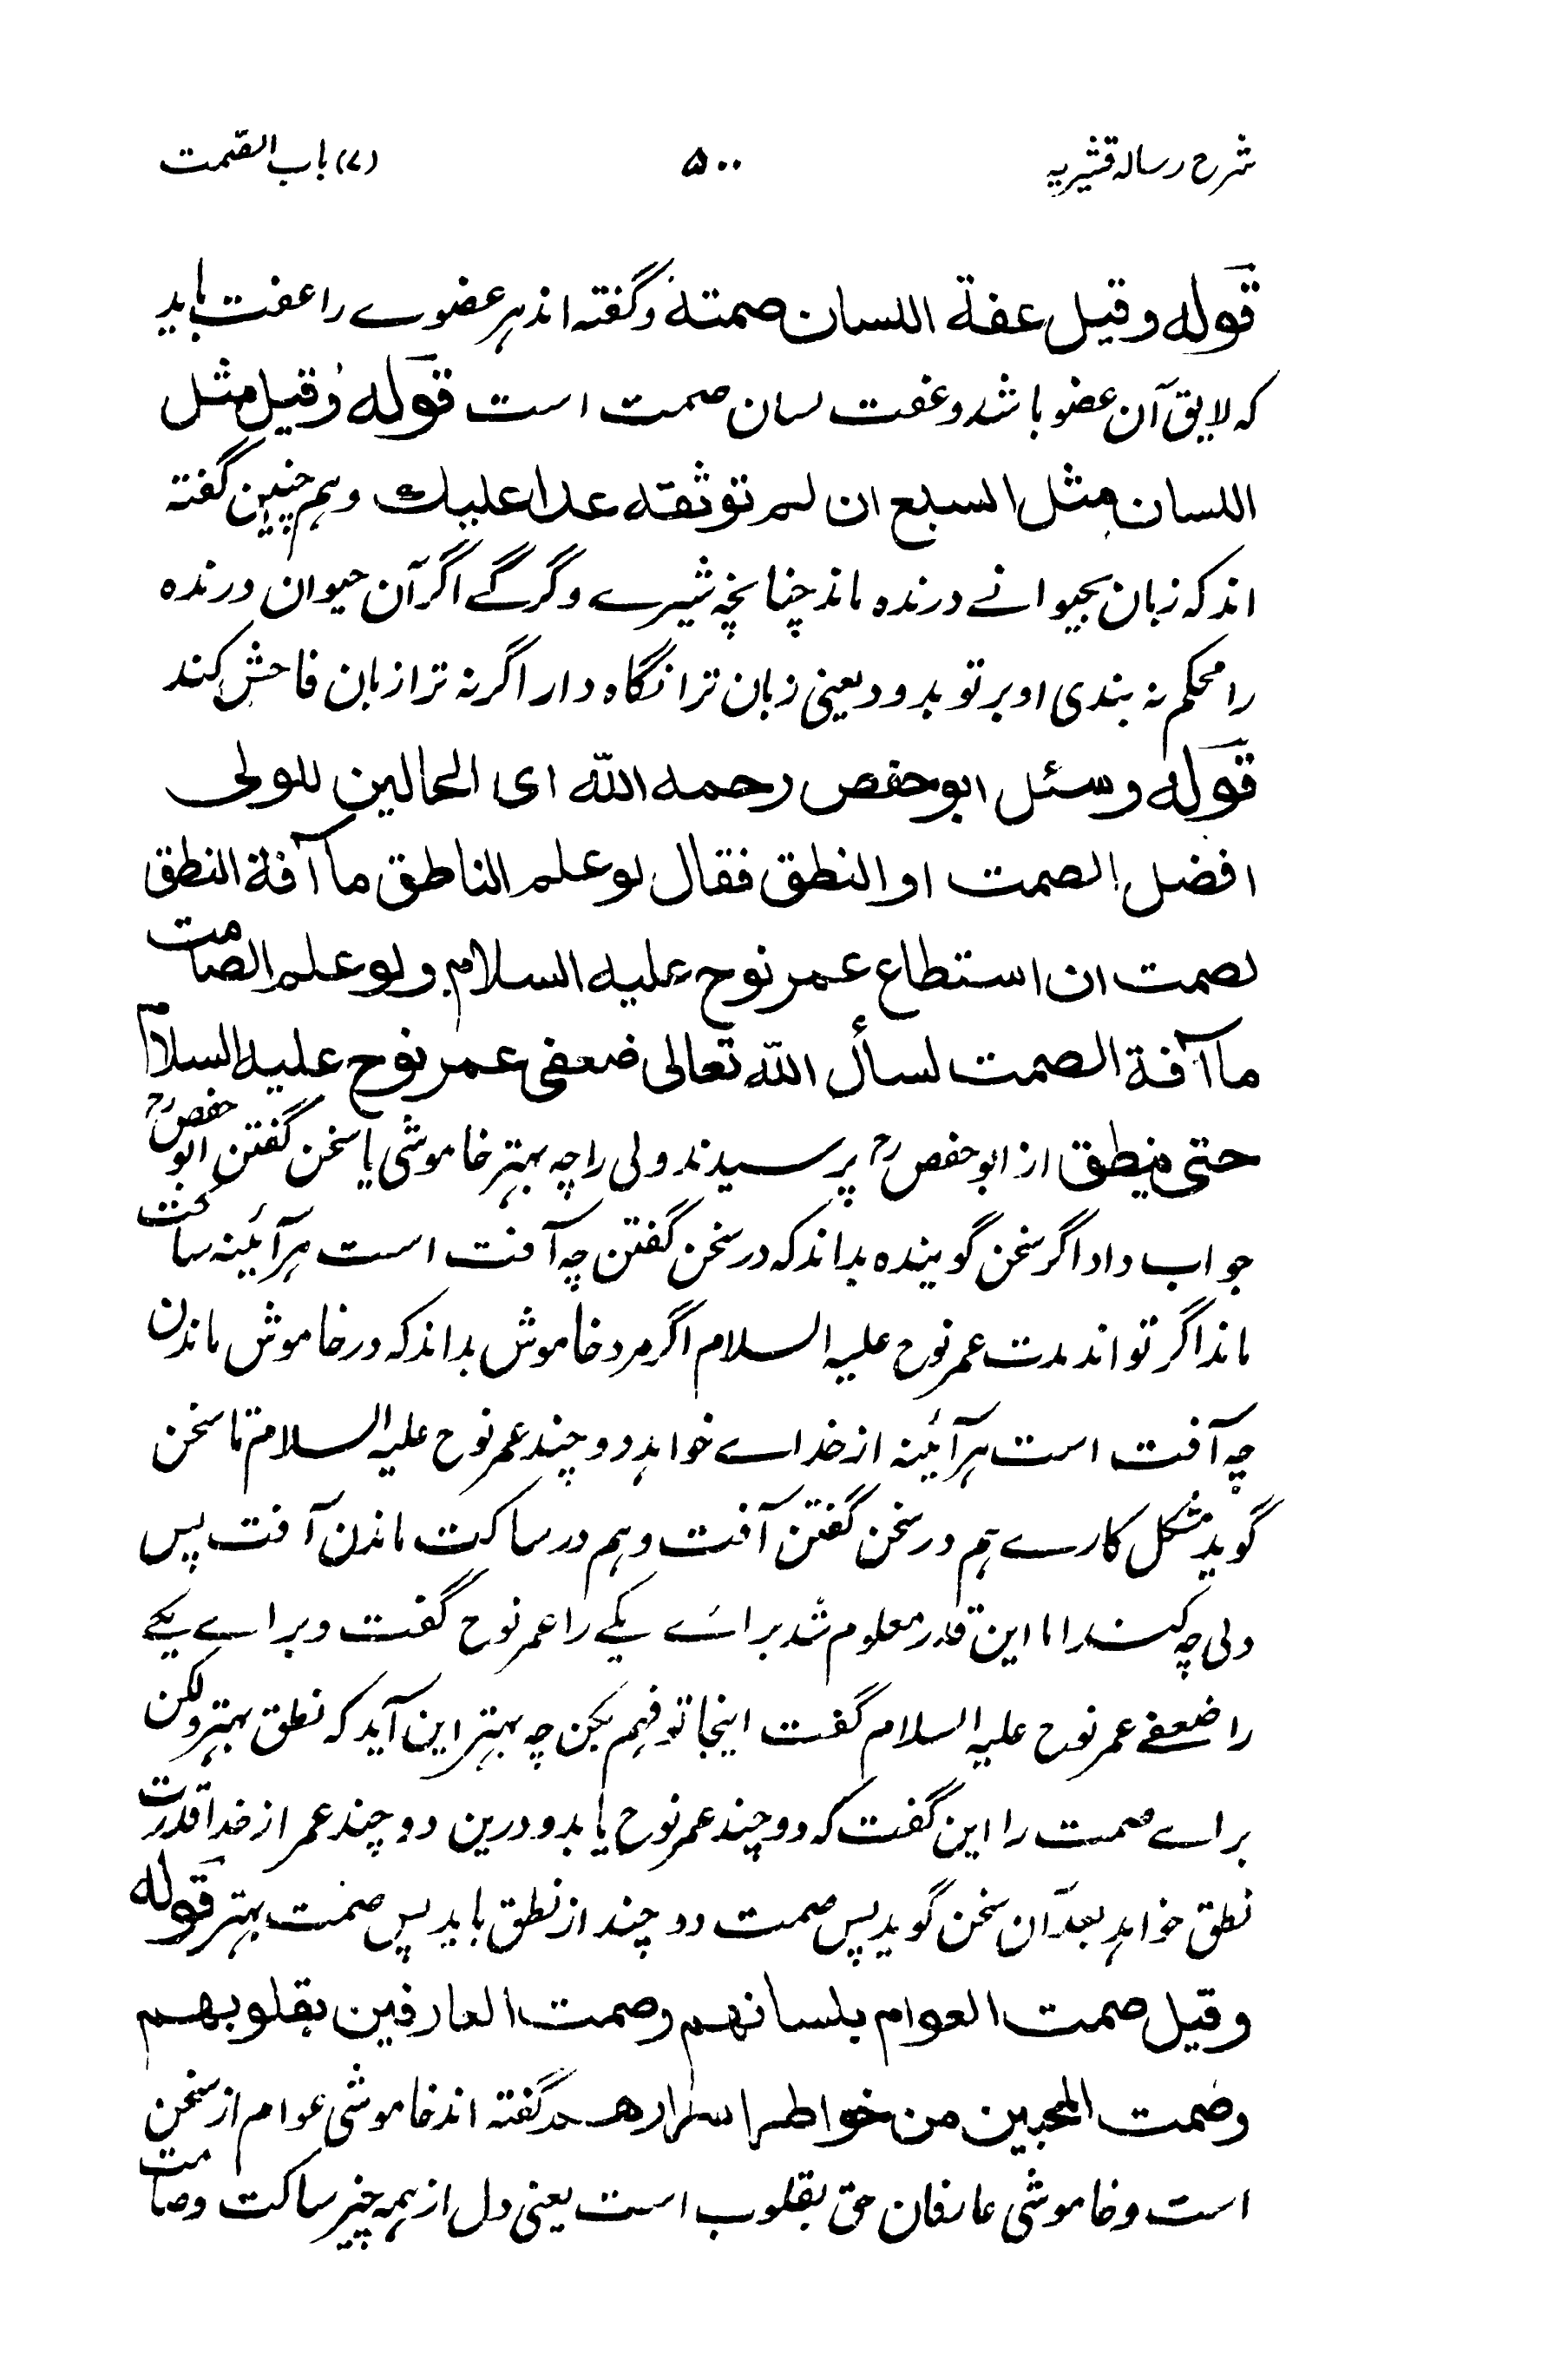 شرح رسالہ قشیریہ ۵۰۰ (۷) باب الصمت
قوله وقيل عفة اللسان صمته وگفتہ اند ہر عضوے را عفت باید
کہ لایق آن عضو باشد وعفت لسان صمت است قوله وقيل مثل
اللسان مثل السبع ان لم توثقه عدا عليك وہم چنین گفتہ
اند کہ زبان بحیوانے درندہ ماند چنانچہ شیرے وگرگے اگر آن حیوان درندہ
را محکم نہ بندی او بر تو بدود یعنی زبان ترا نگاہ دار اگر نہ ترا زبان فاحش کند
قوله وسئل ابو حفص رحمه الله اى الحالين للولى
افضل الصمت او النطق فقال لو علم الناطق ما آفة النطق
لصمت ان استطاع عمر نوح عليه السلام ولو علم الصامت
ما آفة الصمت لسأل الله تعالى ضعفى عمر نوح عليه السلام
حتى ينطق از ابو حفص رح پرسیدند ولی را چہ بہتر خاموشی یا سخن گفتن ابو حفص رح
جواب داد اگر سخن گویندہ بداند کہ در سخن گفتن چہ آفت است ہر آئینہ ساکت
ماند اگر تواند مدت عمر نوح علیہ السلام اگر مرد خاموش بداند کہ در خاموش ماندن
چہ آفت است ہر آئینہ از خداے خواہد دو چند عمر نوح علیہ السلام تا سخن
گوید مشکل کارے ہم در سخن گفتن آفت وہم در ساکت ماندن آفت پس
ولی چہ کند اما این قدر معلوم شد براے یکے را عمر نوح گفت وبراے یکے
را ضعفے عمر نوح علیہ السلام گفت اینجا تو فہم بکن چہ بہتر این آید کہ نطق بہتر ولکن
براے صمت را این گفت کہ دو چند عمر نوح یابد ودرین دو چند عمر از خدا قدرت
نطق خواہد بعد آن سخن گوید پس صمت دو چند از نطق باید پس صمت بہتر قوله
وقيل صمت العوام بلسانهم وصمت العارفين بقلوبهم
وصمت المحبين من خواطر اسرارهم گفتہ اند خاموشی عوام از سخن
است وخاموشی عارفان حق بقلوب است یعنی دل از ہمہ چیز ساکت وصامت